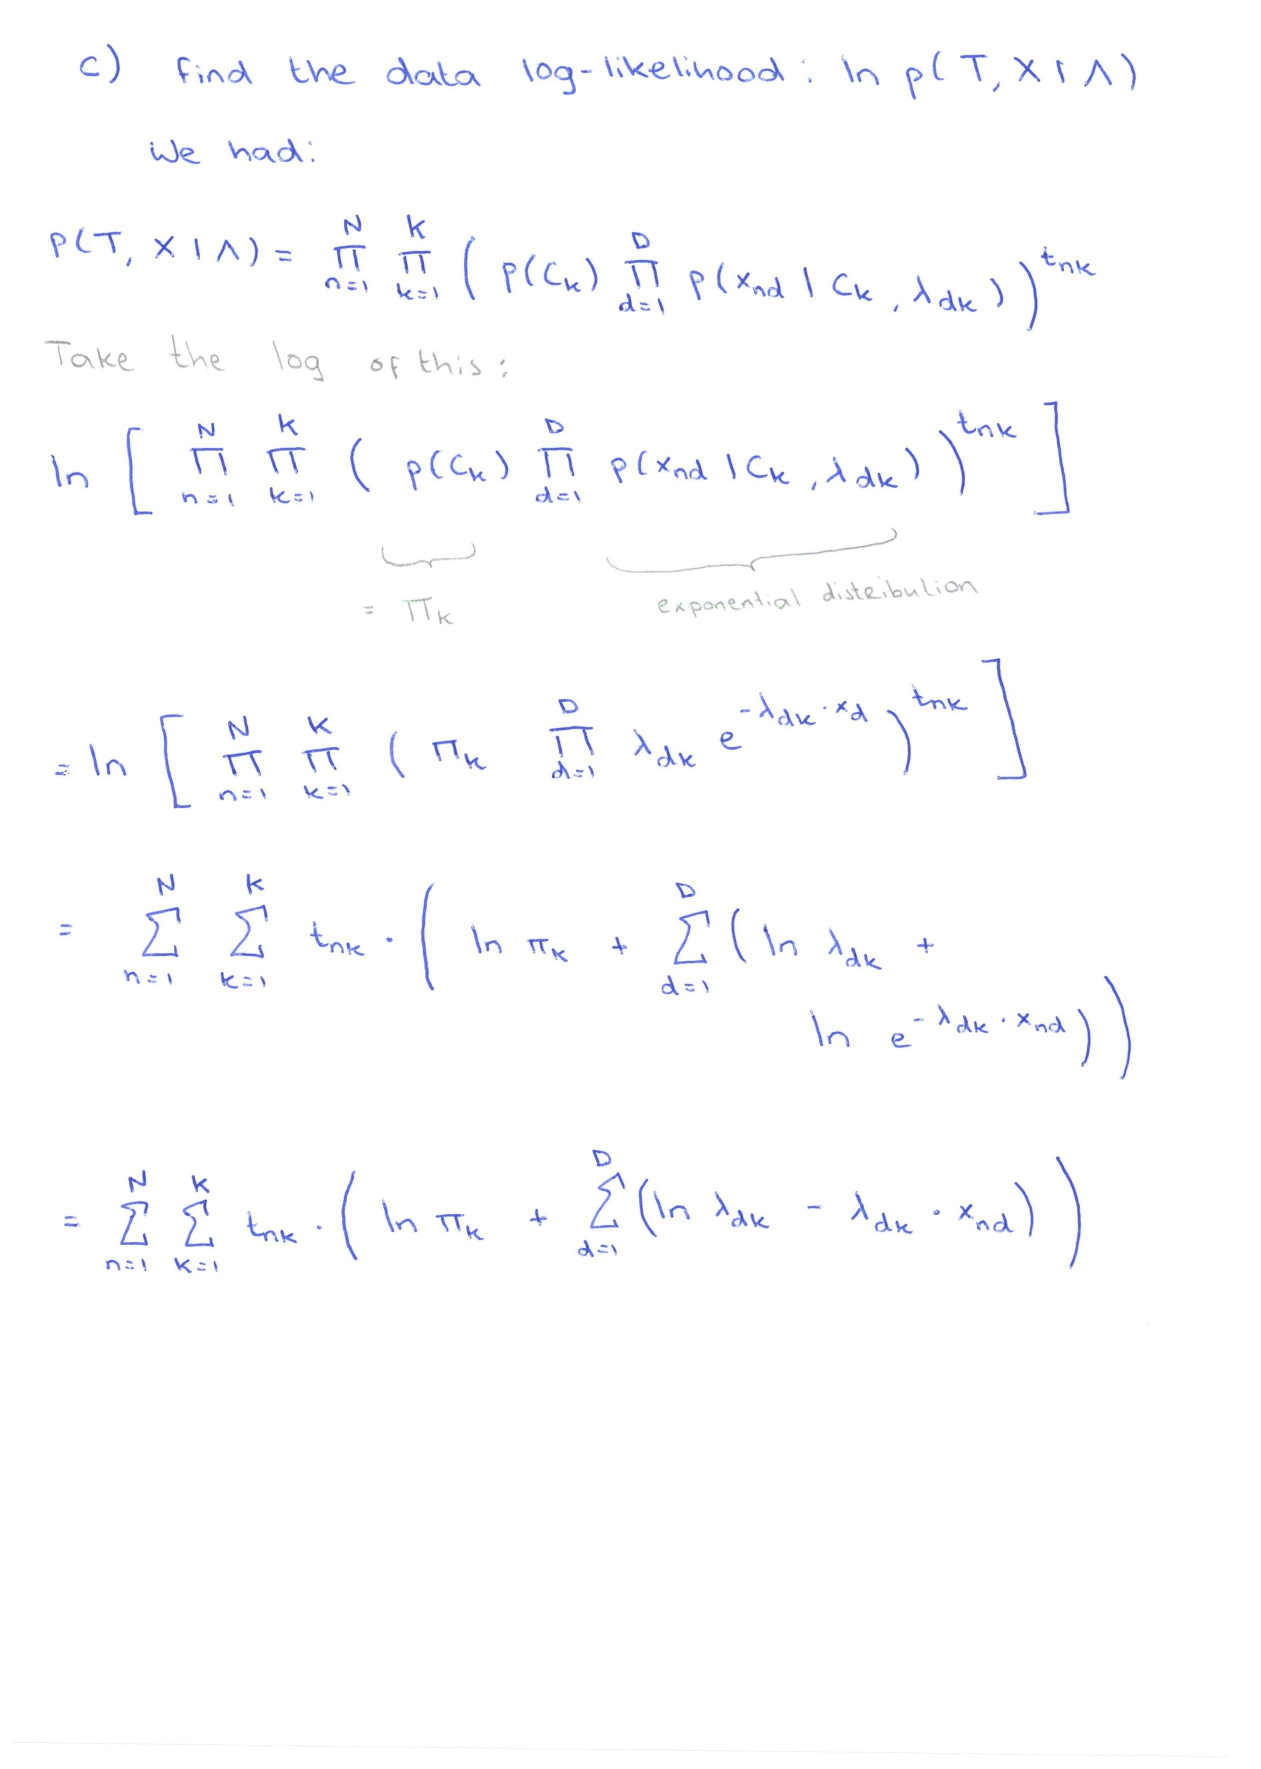 c) find the data log-likelihood: ln p(T, X | Λ)
We had:
p(T, X | Λ) = ∏_{n=1}^{N} ∏_{k=1}^{K} ( p(C_k) ∏_{d=1}^{D} p(x_{nd} | C_k, λ_{dk}) )^{t_{nk}}
Take the log of this:
ln [ ∏_{n=1}^{N} ∏_{k=1}^{K} ( p(C_k) ∏_{d=1}^{D} p(x_{nd} | C_k, λ_{dk}) )^{t_{nk}} ]
= π_k exponential distribution
= ln [ ∏_{n=1}^{N} ∏_{k=1}^{K} ( π_k ∏_{d=1}^{D} λ_{dk} e^{-λ_{dk} · x_d} )^{t_{nk}} ]
= ∑_{n=1}^{N} ∑_{k=1}^{K} t_{nk} · ( ln π_k + ∑_{d=1}^{D} ( ln λ_{dk} +
ln e^{-λ_{dk} · x_{nd}} ) )
= ∑_{n=1}^{N} ∑_{k=1}^{K} t_{nk} · ( ln π_k + ∑_{d=1}^{D} ( ln λ_{dk} - λ_{dk} · x_{nd} ) )